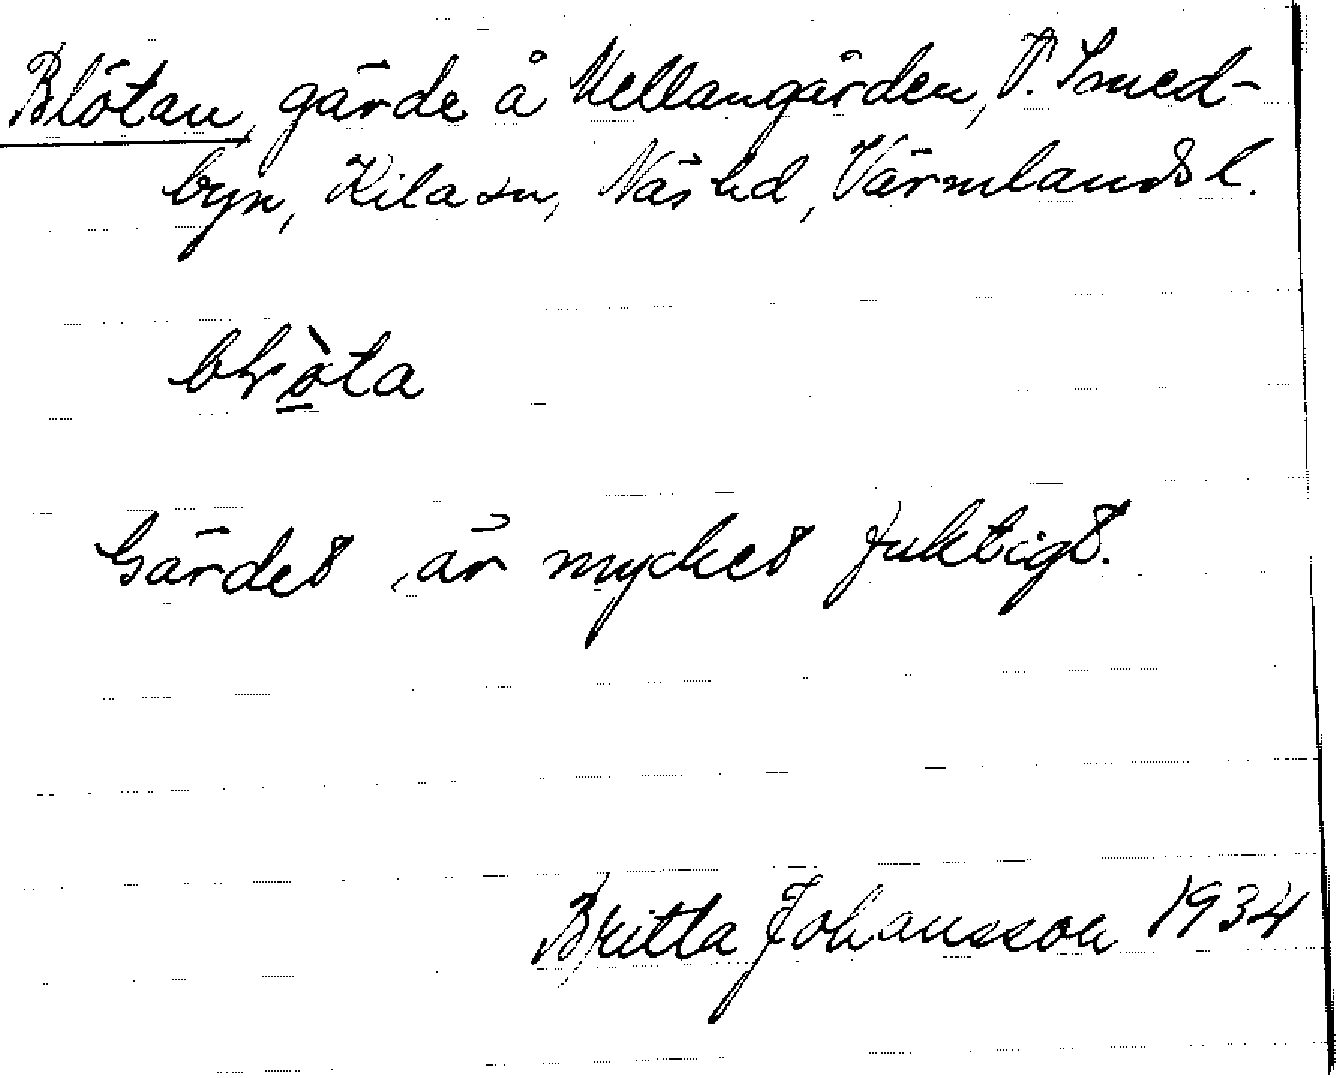 Blötan, gärde å Mellangården, V. Smed-
byn, Kila sn, Näs hd, Värmlands l.
blöta
Gärdet är mycket fuktigt.
Britta Johansson 1934